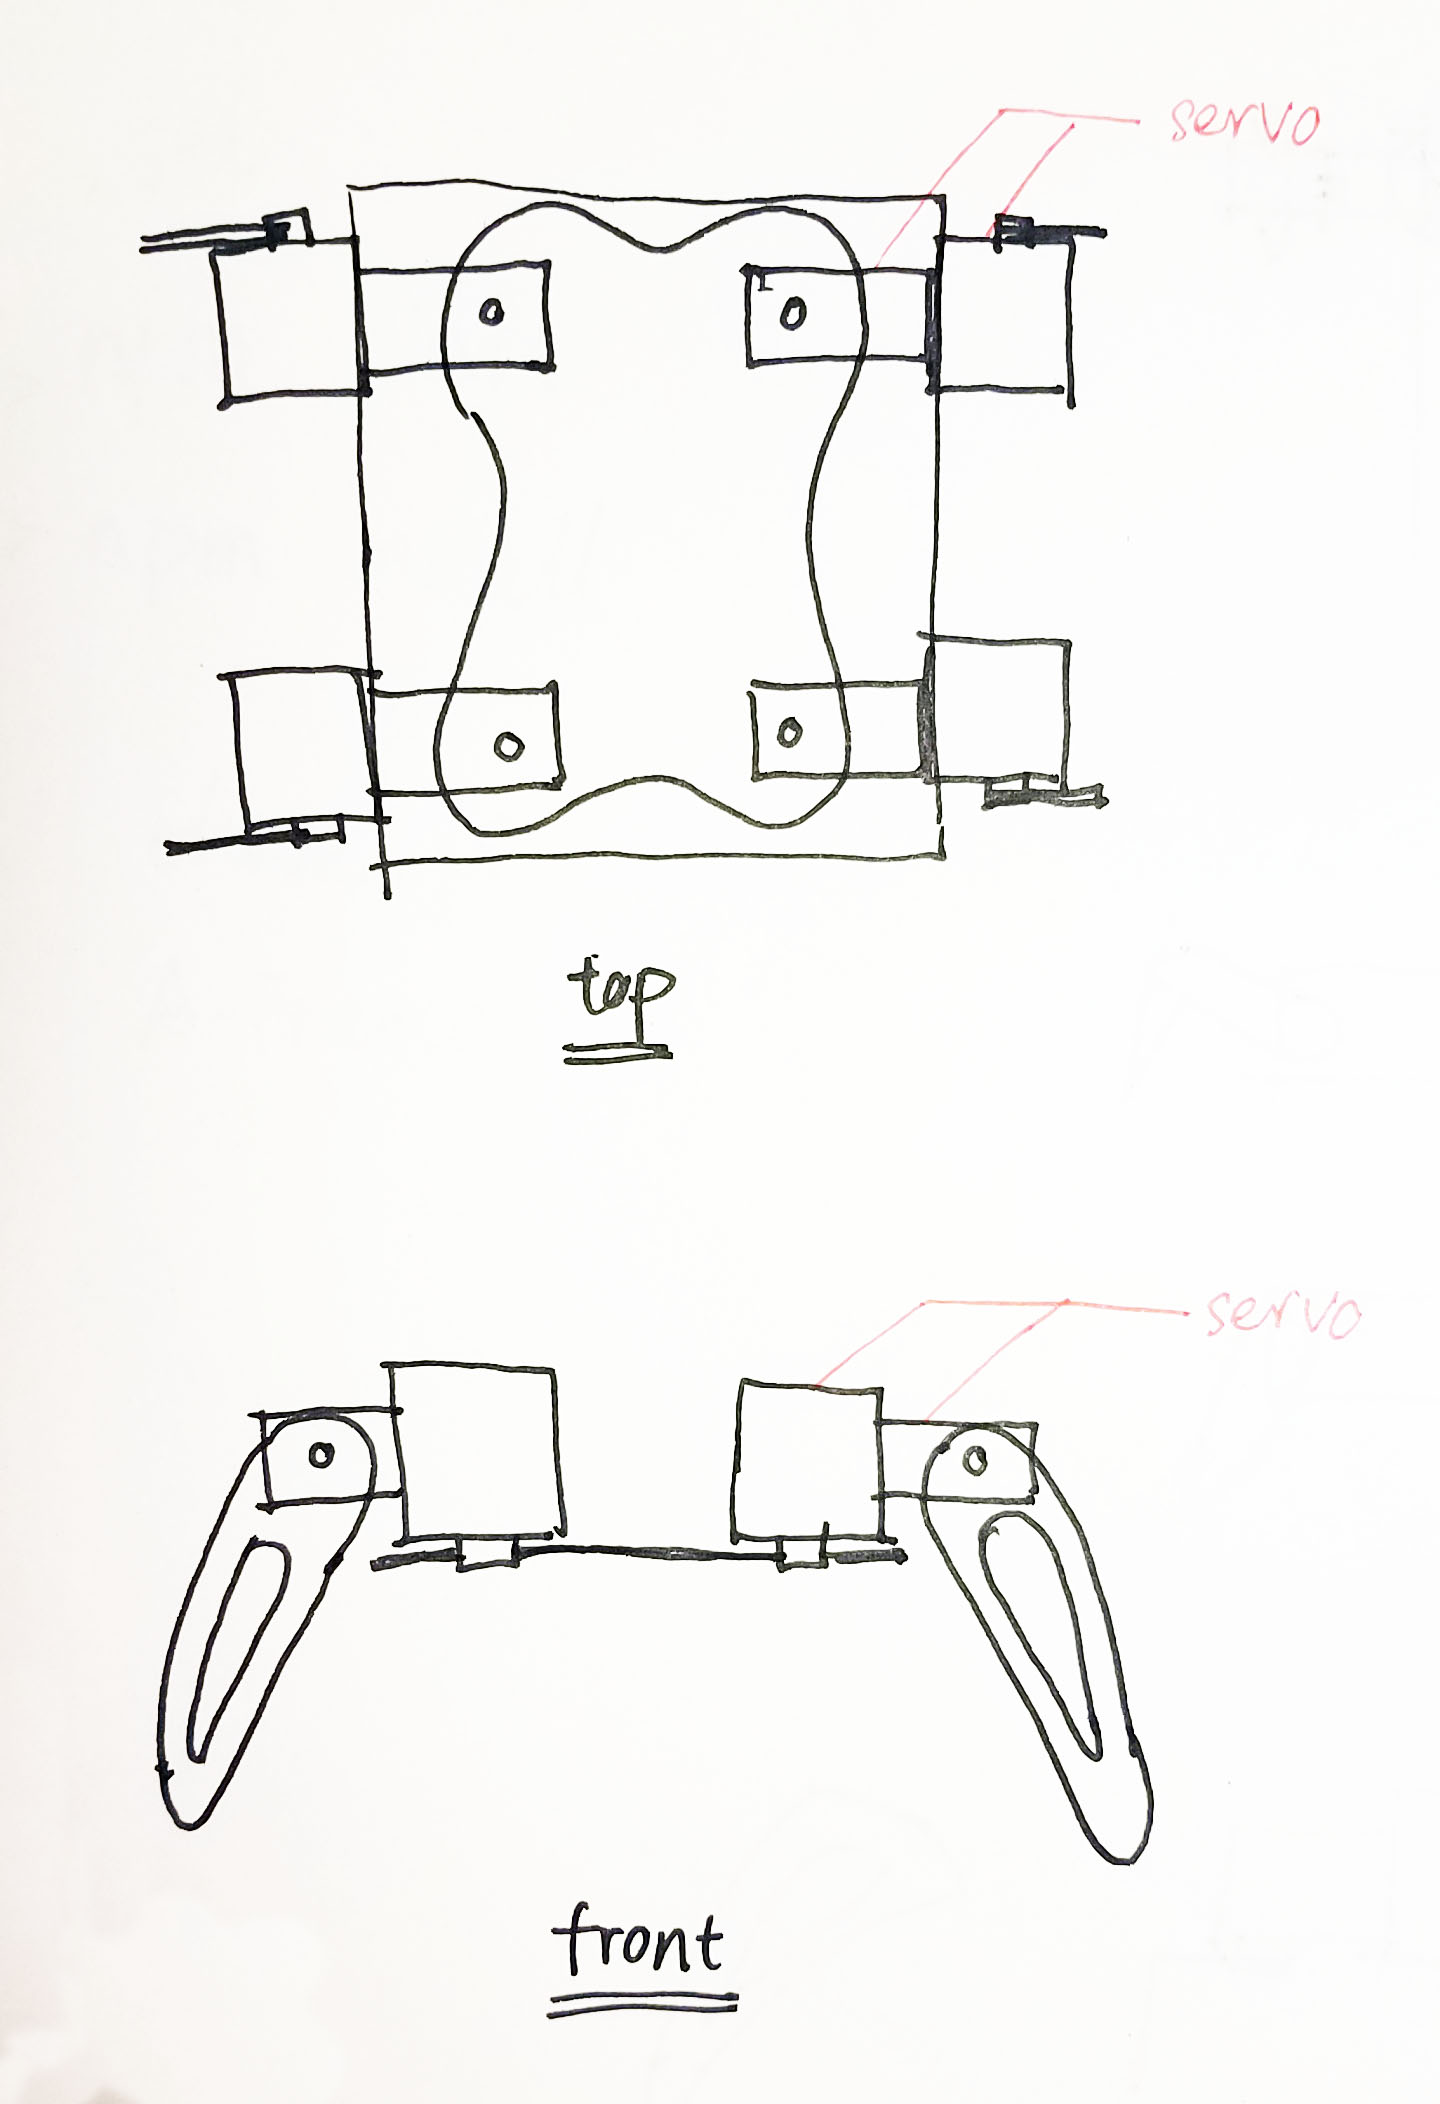 servo
top
servo
front